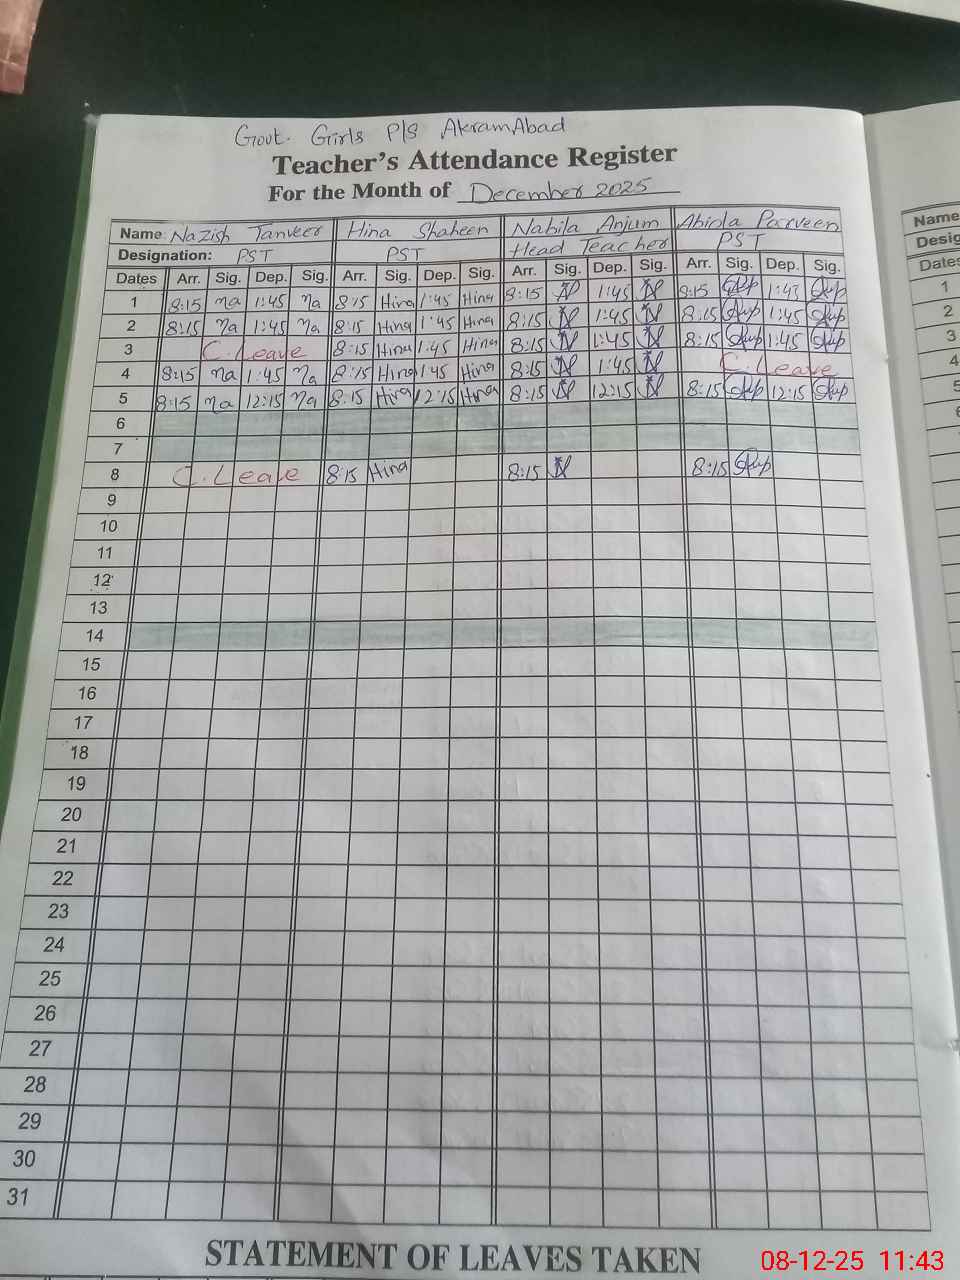 Govt. Girls P/S AkramAbad
Teacher's Attendance Register
For the Month of December 2025
Name: Nazish Tanveer Hina Shaheen Nabila Anjum Abida Parveen
Designation: PST PST Head Teacher PST
Dates Arr. Sig. Dep. Sig. Arr. Sig. Dep. Sig. Arr. Sig. Dep. Sig. Arr. Sig. Dep. Sig.
1 8:15 na 1:45 na 8:15 Hina 1:45 Hina 8:15 1:45 8:15 1:45
2 8:15 na 1:45 na 8:15 Hina 1:45 Hina 8:15 1:45 8:15 1:45
3 C.Leave 8:15 Hina 1:45 Hina 8:15 1:45 8:15 1:45
4 8:15 na 1:45 na 8:15 Hina 1:45 Hina 8:15 1:45 C.Leave
5 8:15 na 12:15 na 8:15 Hina 12:15 Hina 8:15 12:15 8:15 12:15
6
7
8 C.Leave 8:15 Hina 8:15 8:15
9
10
11
12
13
14
15
16
17
18
19
20
21
22
23
24
25
26
27
28
29
30
31
STATEMENT OF LEAVES TAKEN
Name
Desig
Dates
1
2
3
4
5
6
08-12-25 11:43